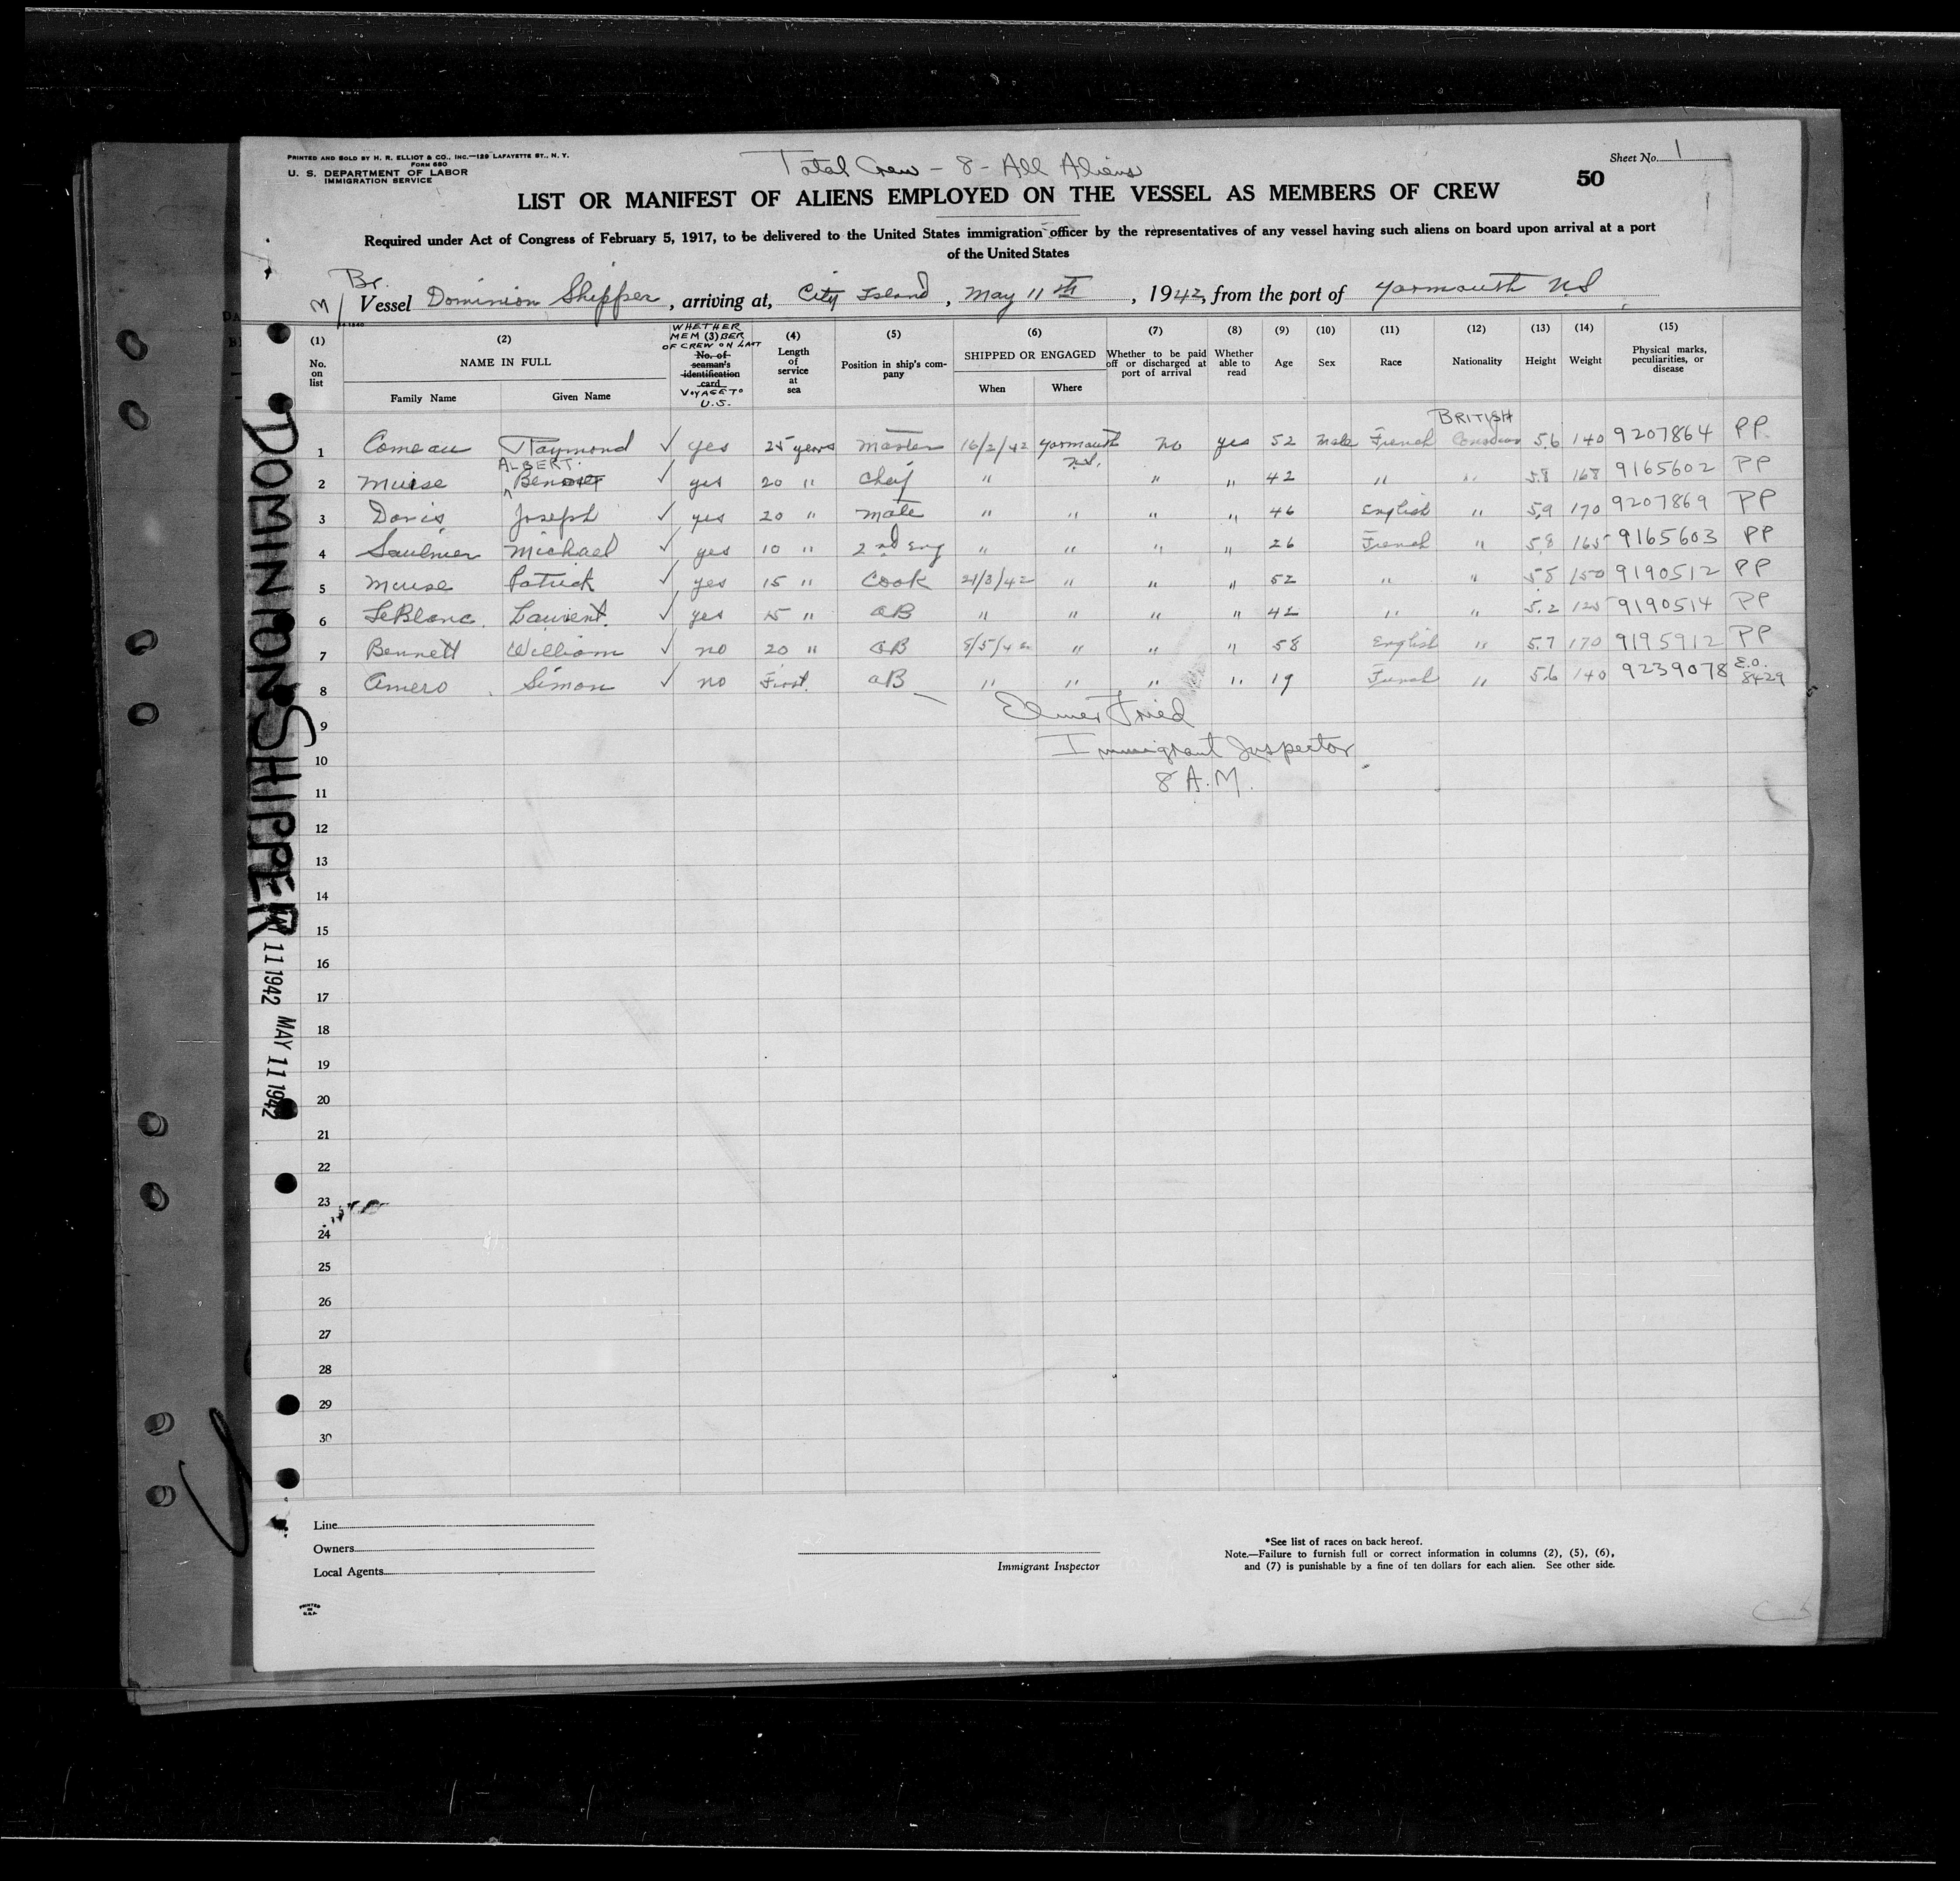 PRINTED AND SOLD BY H. R. ELLIOT & CO., INC.—129 LAFAYETTE ST., N. Y.
FORM 680
U. S. DEPARTMENT OF LABOR
IMMIGRATION SERVICE
Total Crew - 8 - All Aliens
Sheet No. 1
50
LIST OR MANIFEST OF ALIENS EMPLOYED ON THE VESSEL AS MEMBERS OF CREW
Required under Act of Congress of February 5, 1917, to be delivered to the United States immigration officer by the representatives of any vessel having such aliens on board upon arrival at a port
of the United States
Br.
M/ Vessel Dominion Shipper, arriving at, City Island, May 11th, 1942, from the port of Yarmouth N.S
(1) No. on list
(2) NAME IN FULL
Family Name Given Name
WHETHER MEMBER OF CREW ON LAST VOYAGE TO U.S.
(3) No. of seaman's identification card
(4) Length of service at sea
(5) Position in ship's company
(6) SHIPPED OR ENGAGED
When Where
(7) Whether to be paid off or discharged at port of arrival
(8) Whether able to read
(9) Age
(10) Sex
(11) Race
(12) Nationality
(13) Height
(14) Weight
(15) Physical marks, peculiarities, or disease
BRITISH
1 Comeau Raymond ✓ yes 25 years Master 16/2/42 Yarmouth N.S. no yes 52 Male French Canadian 5.6 140 9207864 PP
ALBERT
2 Muise Benoit ✓ yes 20 " Chief " " " 42 " " 5.8 168 9165602 PP
3 Davis Joseph ✓ yes 20 " Mate " " " " 46 English " 5.9 170 9207869 PP
4 Saulnier Michael ✓ yes 10 " 2nd Eng " " " " 26 French " 5.8 165 9165603 PP
5 Muise Patrick ✓ yes 15 " Cook 21/3/42 " " " 52 " " 5.8 150 9190512 PP
6 LeBlanc Laurent ✓ yes 15 " AB " " " " 42 " " 5.2 125 9190514 PP
7 Bennett William ✓ no 20 " AB 8/5/42 " " " 58 English " 5.7 170 9195912 PP
8 Amero Simon ✓ no First AB " " " " 19 French " 5.6 140 9239078 E.O. 8429
9
Elmer Fried
10
Immigrant Inspector
11
8 A.M.
12
13
14
15
16
17
18
19
20
21
22
23
24
25
26
27
28
29
30
DOMINION SHIPPER
MAY 11 1942 MAY 11 1942
Line
Owners
Local Agents
Immigrant Inspector
*See list of races on back hereof.
Note.—Failure to furnish full or correct information in columns (2), (5), (6),
and (7) is punishable by a fine of ten dollars for each alien. See other side.
PRINTED
IN
U.S.A.